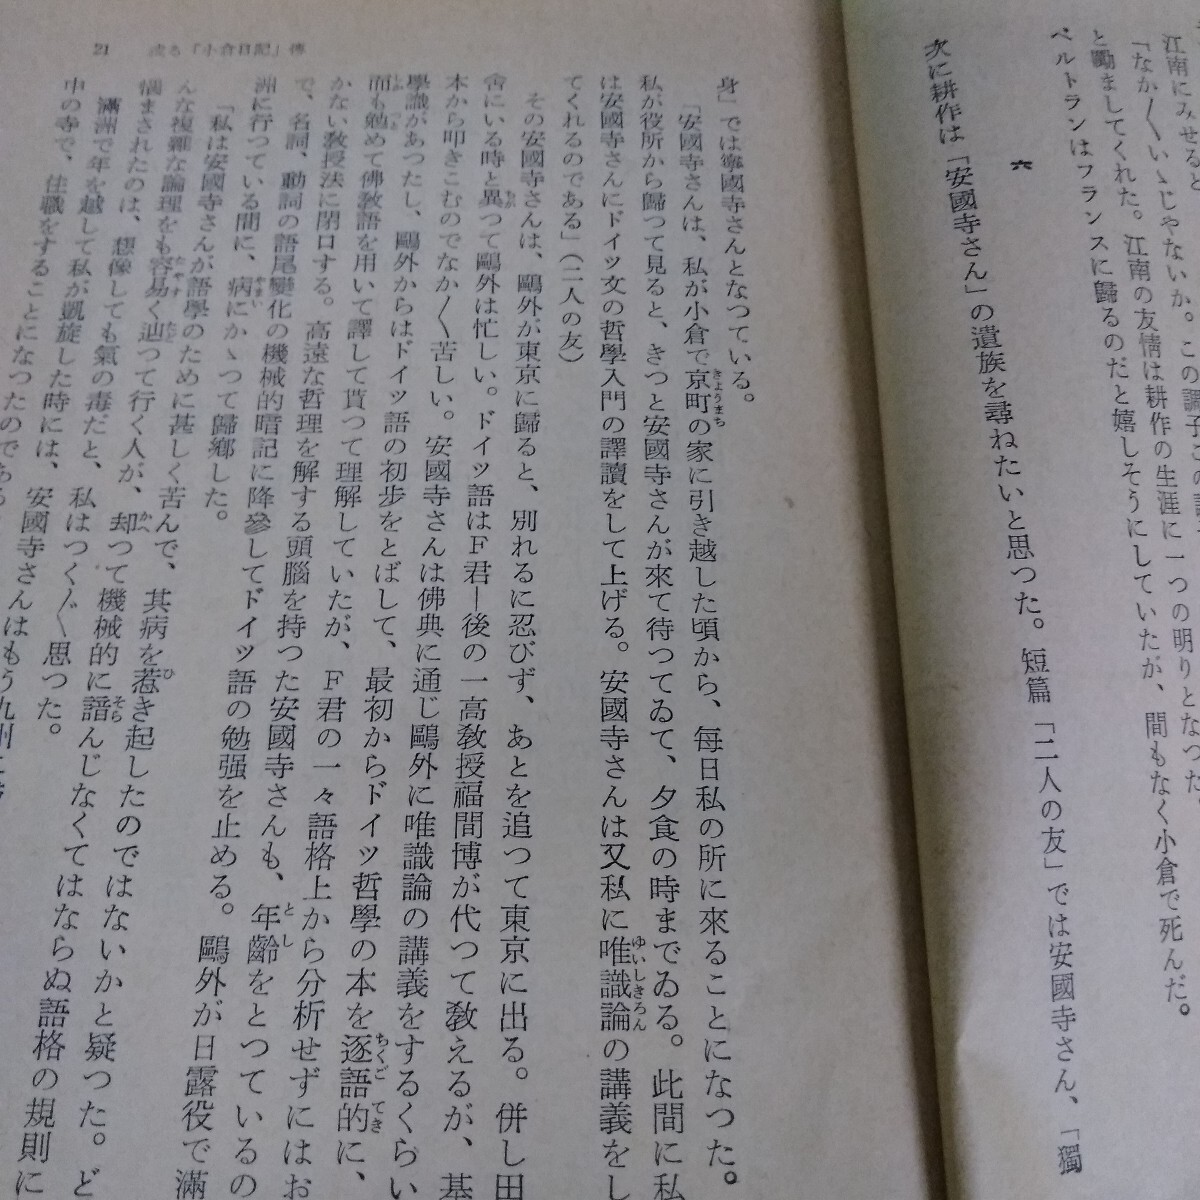 江南にみせると
「なか〱いゝじゃないか。この調子この調
と勵ましてくれた。江南の友情は耕作の生涯に一つの明りとなつた。
ベルトランはフランスに歸るのだと嬉しそうにしていたが、間もなく小倉で死んだ。
六
次に耕作は「安國寺さん」の遺族を尋ねたいと思つた。短篇「二人の友」では安國寺さん、「獨
21 或る「小倉日記」傳
身」では寧國寺さんとなつている。
「安國寺さんは、私が小倉で京町の家に引き越した頃から、毎日私の所に來ることになつた。
私が役所から歸つて見ると、きつと安國寺さんが來て待つてゐて、夕食の時までゐる。此間に私
は安國寺さんにドイツ文の哲學入門の譯讀をして上げる。安國寺さんは又私に唯識論の講義をし
てくれるのである」（二人の友）
その安國寺さんは、鷗外が東京に歸ると、別れるに忍びず、あとを追つて東京に出る。併し田
舎にいる時と異つて鷗外は忙しい。ドイツ語はF君―後の一高敎授福間博が代つて敎えるが、基
本から叩きこむのでなか〱苦しい。安國寺さんは佛典に通じ鷗外に唯識論の講義をするくらい
學識があつたし、鷗外からはドイツ語の初步をとばして、最初からドイツ哲學の本を逐語的に、
而も勉めて佛敎語を用いて譯して貰つて理解していたが、F君の一々語格上から分析せずにはお
かない敎授法に閉口する。高遠な哲理を解する頭腦を持つた安國寺さんも、年齡をとつているの
で、名詞、動詞の語尾變化の機械的暗記に降參してドイツ語の勉强を止める。鷗外が日露役で滿
洲に行つている間に、病にかゝつて歸鄕した。
「私は安國寺さんが語學のために甚しく苦んで、其病を惹き起したのではないかと疑つた。ど
んな複雜な論理をも容易く辿つて行く人が、却つて機械的に諳んじなくてはならぬ語格の規則に
惱まされたのは、想像しても氣の毒だと、私はつく〲思つた。
滿洲で年を越して私が凱旋した時には、安國寺さんはもう九州に
中の寺で、住職をすることになつたのである